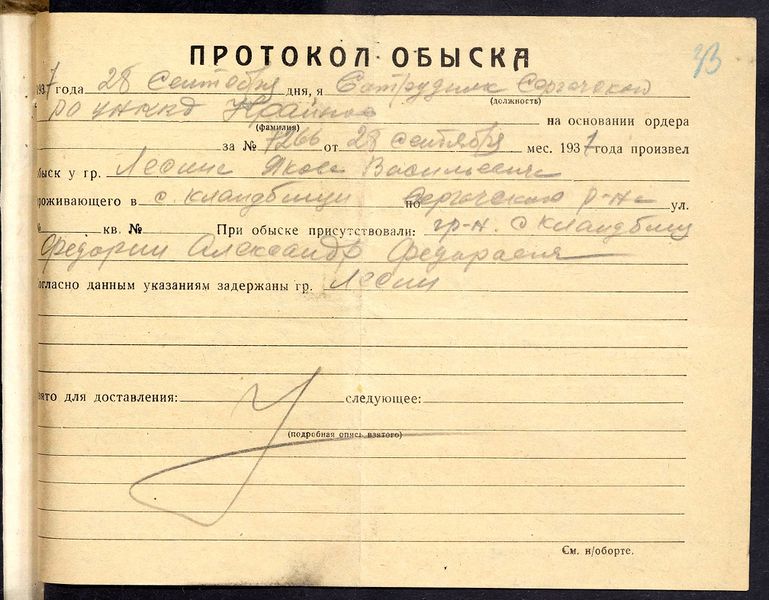 ПРОТОКОЛ ОБЫСКА
33
1937 года 28 сентября дня, я Сотрудник Сергачского
(должность)
РО УНКВД Крайнов
(фамилия)
на основании ордера
за № 7266 от 28 сентября мес. 1937 года произвел
обыск у гр. Лесина Якова Васильевича
роживающего в с. кландбищи по Сергачского р-на ул.
№ кв. № При обыске присутствовали: гр-н. с кландбищ
Федорин Александр
огласно данным указаниям задержаны гр. Лесин
ято для доставления: следующее:
(подробная опись взятого)
См. н/оборте.